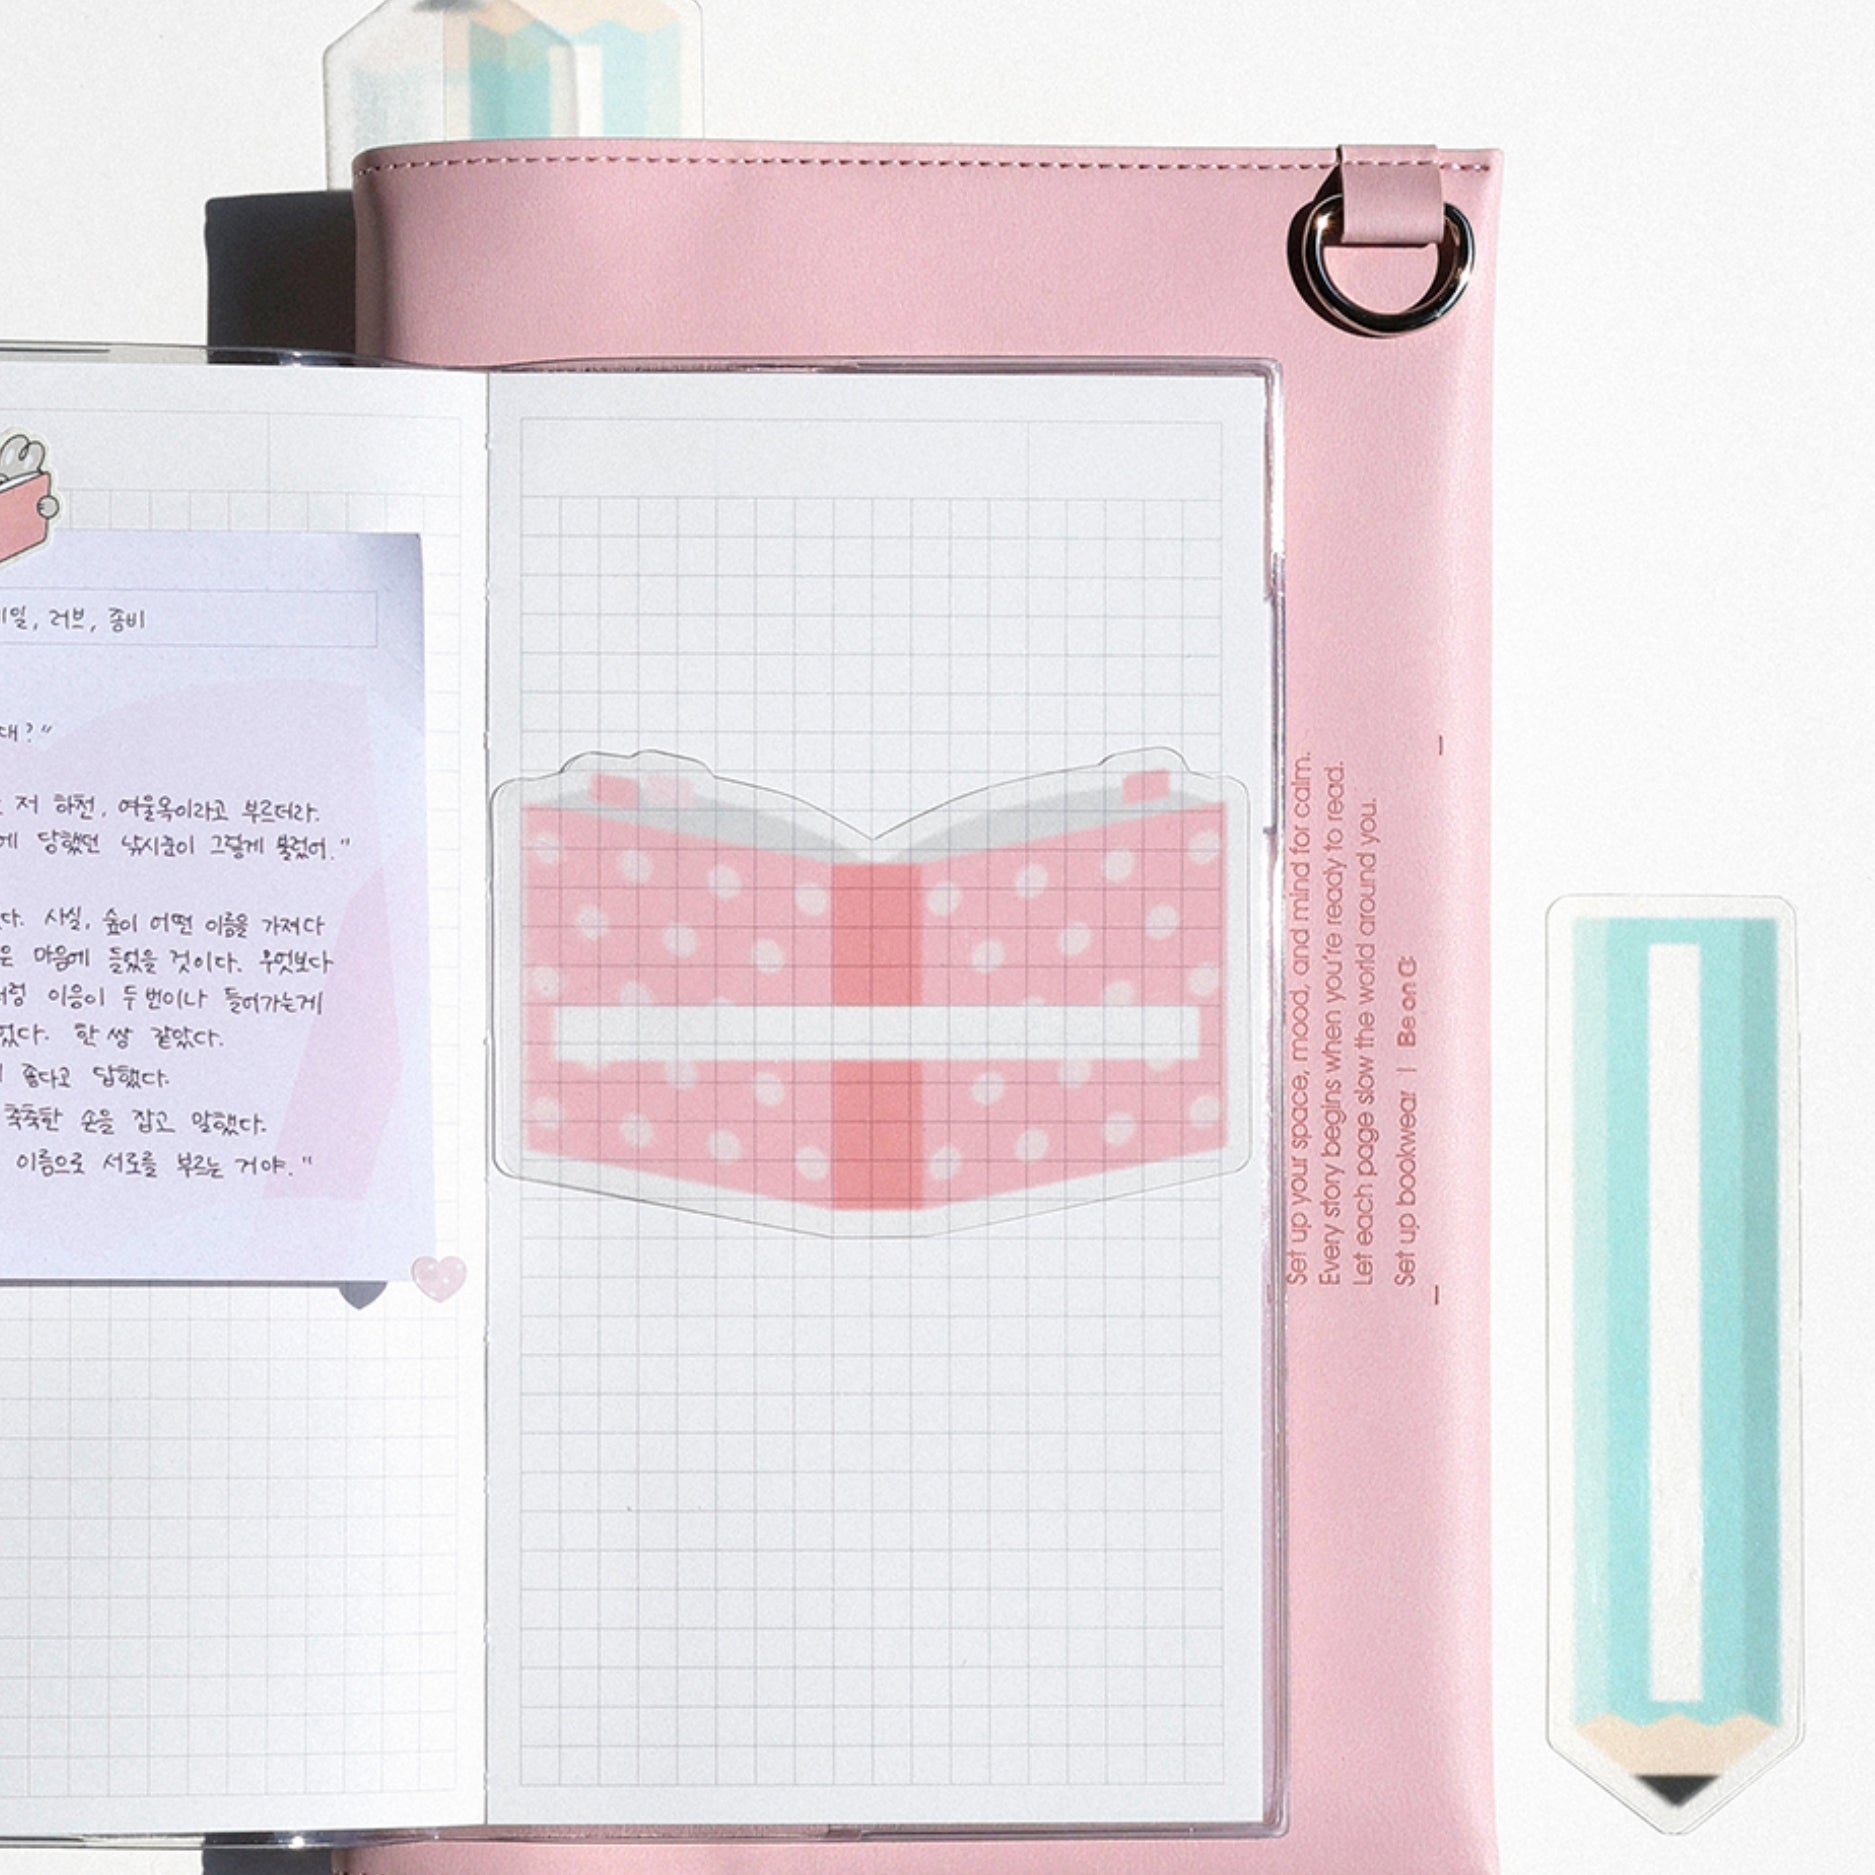 러브, 좀비
저 하천, 여울옥이라고 부르더라.
당했던 낚시꾼이 그렇게 불렀어."
사실, 숲이 어떤 이름을 가져다
마음에 들었을 것이다. 무엇보다
이응이 두 번이나 들어가는게
한 쌍 같았다.
좋다고 답했다.
축축한 손을 잡고 말했다.
이름으로 서로를 부르는 거야."
Set up your space, mood, and mind for calm.
Every story begins when you're ready to read.
Let each page slow the world around you.
Set up bookwear | Be on